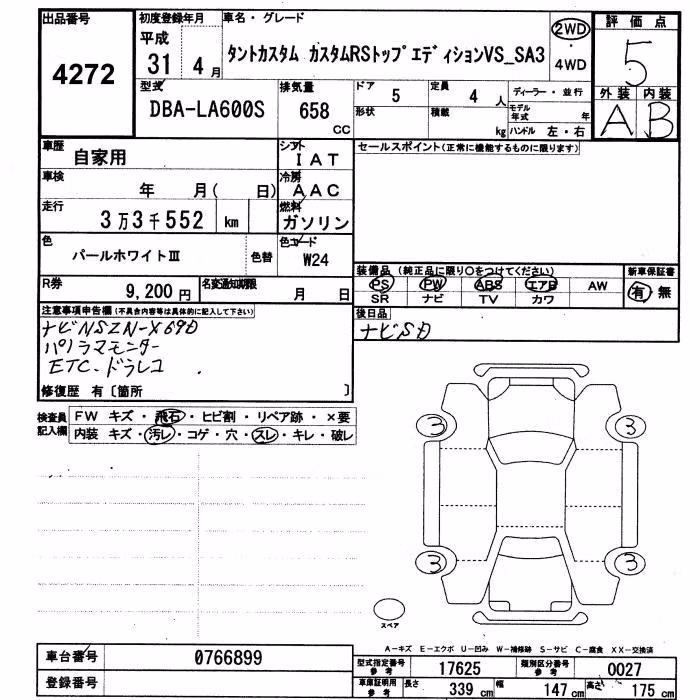 出品番号
4272
初度登録年月
平成
31年 4月
車名・グレード
タントカスタム カスタムRSトップエディションVS_SA3
2WD
・
4WD
評価点
5
外装 内装
A B
型式
DBA-LA600S
排気量
658
CC
ドア
5
定員
4人
ディーラー・並行
形状
積載
kg
モデル年式 年
ハンドル 左・右
車歴
自家用
シフト
IAT
セールスポイント(正常に機能するものに限ります)
車検
年 月( 日)
冷房
AAC
走行
3万3千552 km
燃料
ガソリン
色
パールホワイトⅢ
色替
色コード
W24
装備品 (純正品に限り○をつけてください)
新車保証書
PS PW ABS エアB AW
SR ナビ TV カワ
有・無
R券
9,200円
名変通知期限
月 日
後日品
ナビSD
注意事項申告欄(不具合内容等は具体的に記入して下さい)
ナビNSZN-X69D
パノラマモニター
ETC.ドラレコ
修復歴 有〔箇所 〕
検査員記入欄
FW キズ・飛石・ヒビ割・リペア跡・×要
内装 キズ・汚レ・コゲ・穴・スレ・キレ・破レ
3 3
3 3
スペア
A-キズ E-エクボ U-凹み W-補修跡 S-サビ C-腐食 XX-交換済
車台番号
0766899
型式指定番号
参考
17625
類別区分番号
参考
0027
登録番号
車庫証明用
参考
長さ
339 cm
幅
147 cm
高さ
175 cm